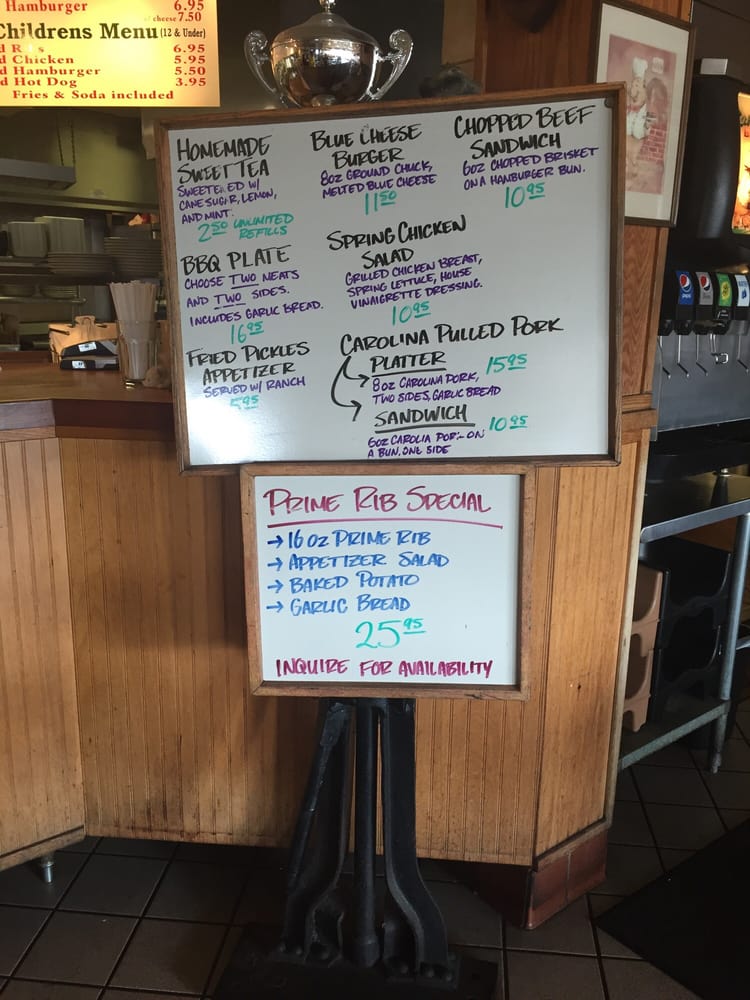 Hamburger 6.95
cheese 7.50
Childrens Menu (12 & Under)
6.95
d Chicken 5.95
d Hamburger 5.50
d Hot Dog 3.95
Fries & Soda included
HOMEMADE
SWEET TEA
SWEETENED W/
CANE SUGAR, LEMON,
AND MINT.
2.50 UNLIMITED
REFILLS
BLUE CHEESE
BURGER
8OZ GROUND CHUCK,
MELTED BLUE CHEESE
11 50
CHOPPED BEEF
SANDWICH
6OZ CHOPPED BRISKET
ON A HAMBURGER BUN.
10 95
BBQ PLATE
CHOOSE TWO MEATS
AND TWO SIDES.
INCLUDES GARLIC BREAD.
16 95
SPRING CHICKEN
SALAD
GRILLED CHICKEN BREAST,
SPRING LETTUCE, HOUSE
VINAIGRETTE DRESSING.
10 95
FRIED PICKLES
APPETIZER
SERVED W/ RANCH
5 95
CAROLINA PULLED PORK
PLATTER 15 95
8OZ CAROLINA PORK,
TWO SIDES, GARLIC BREAD
SANDWICH 10 95
6OZ CAROLIA PORK ON
A BUN, ONE SIDE
PRIME RIB SPECIAL
→ 16 OZ PRIME RIB
→ APPETIZER SALAD
→ BAKED POTATO
→ GARLIC BREAD
25 95
INQUIRE FOR AVAILABILITY